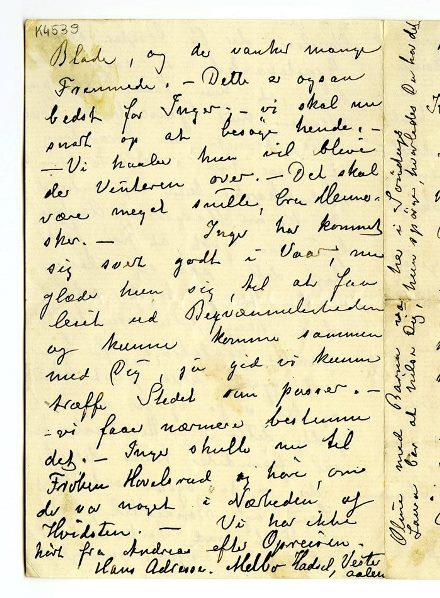 K4539
Blade, og der vanker mange
Fremmede. – Dette er ogsaa
bedst for Inger. – vi skal nu
snart op at besöge hende. –
– Vi haaber hun vil blive
der Vinteren over. – Det skal
være meget snille, bra Menne-
sker. – Inger har kommet
sig svert godt i Vaar, nu
glæder hun sig, til at faa
leiet ud Beqvæmmeligheden
og kunne komme sammen
med Dig, ja gid vi kunne
træffe Stedet som passer. –
– vi faar nærmere bestemme
det. – Inger skulle nu til
Fröken Hovelsrud og höre, om
der var noget i Nærheden af
Hvidsten. – Vi har ikke
hört fra Andreas efter Opreisen.
Hans Adresse. Melbo Hadsel, Vester
aalen
Oline med Barna var her i Söndags
Laura bar at hilse Dig, hun spörger, hvorledes Du har det